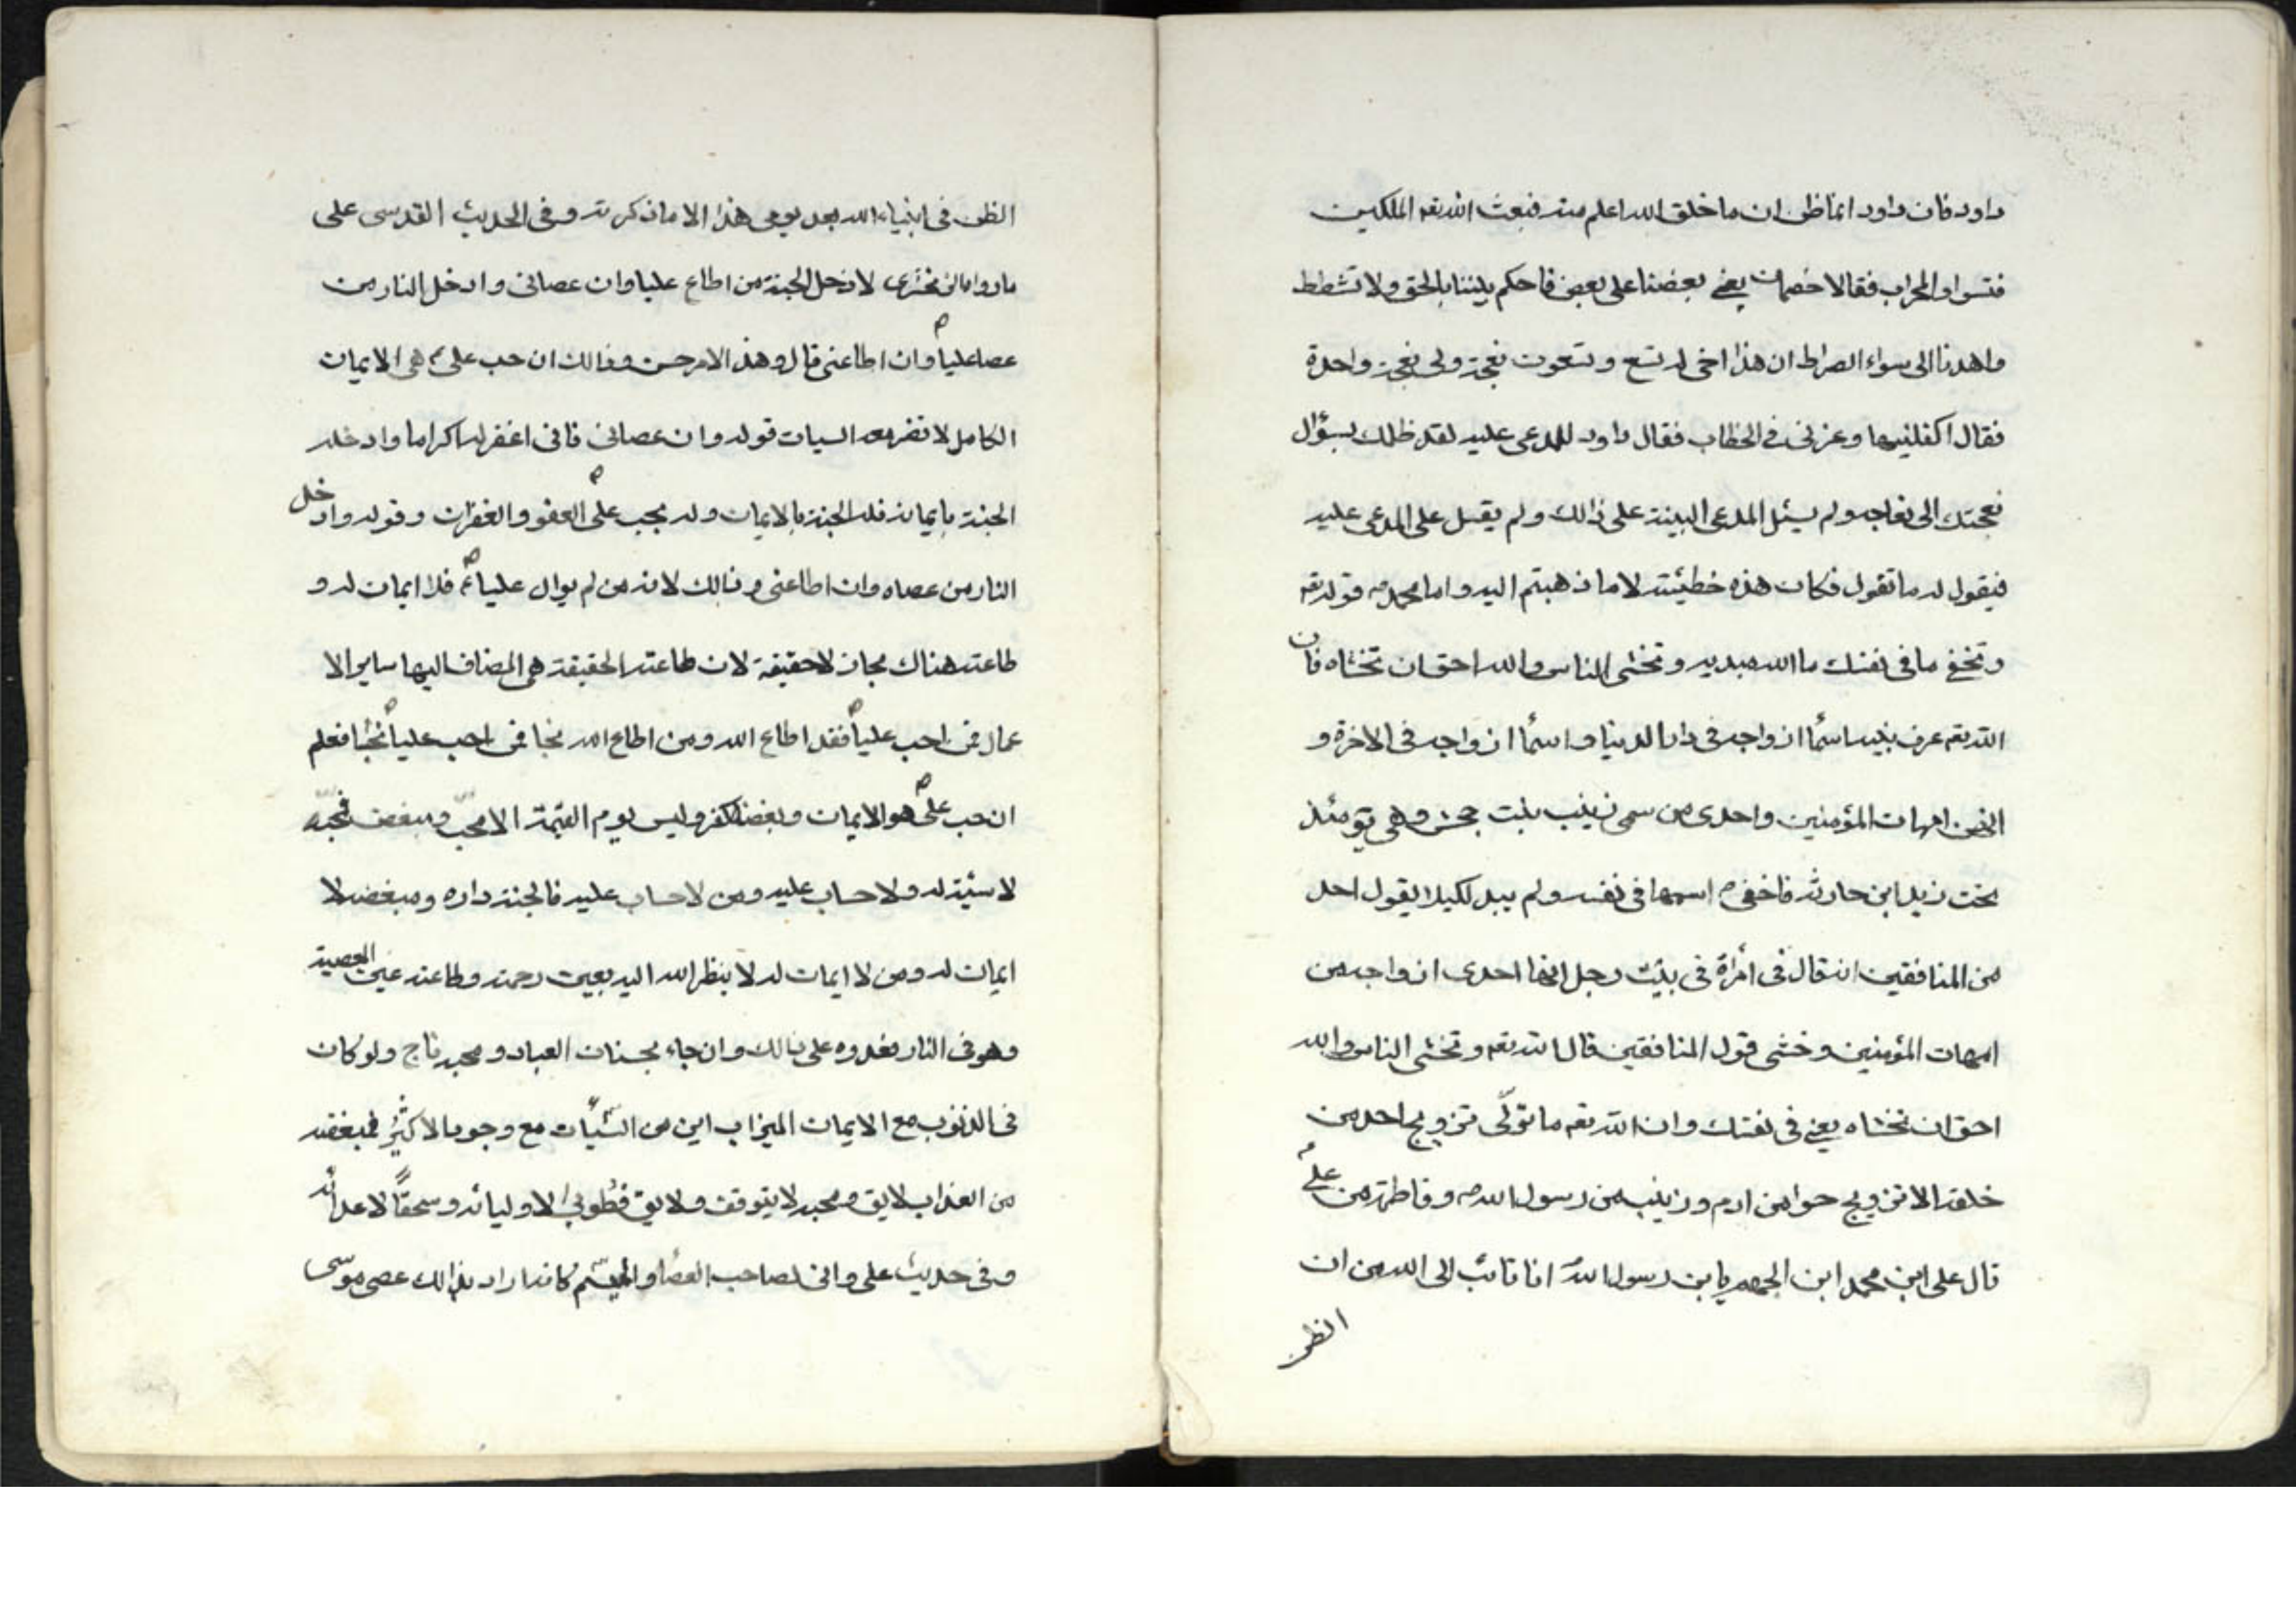 داود فان داود انما ظن ان ما خلق الله اعلم منه فبعث الله تعه الملكين
فتسوا والمحراب فقالا خصمان بغى بعضنا على بعض فاحكم بيننا بالحق ولا تشطط
واهدنا الى سواء الصراط ان هذا اخى له تسع وتسعون نعجة ولى نعجة واحدة
فقال اكفلنيها وعزنى فى الخطاب فقال داود للمدعى عليه لقد ظلمك بسؤال
نعجتك الى نعاجه ولم يسئل المدعى البينة على ذالك ولم يقبل على المدعى عليه
فيقول له ما تقول فكان هذه خطيئته لا ما ذهبتم اليه واما محمد ص قوله تعه
وتخفى ما فى نفسك ما الله مبديه وتخشى الناس والله احق ان تخشاه فان
الله تعه عرف نبيه اسمأ ازواجه فى دار الدنيا واسمأ ازواجه فى الاخرة و
انهن امهات المؤمنين واحدى من سمى زينب بنت جحش وهى يومئذ
تحت زيد ابن حارثه فاخفى ص اسمها فى نفسه ولم يبد لكيلا يقول احد
من المنافقين انه قال فى امرأة فى بيت رجل انها احدى ازواجه من
امهات المؤمنين وخشى قول المنافقين قال الله تعه وتخشى الناس والله
احق ان تخشاه يعنى فى نفسك وان الله تعه ما تولّى تزويج احد من
خلقه الا تزويج حوا من ادم وزينب من رسول الله ص وفاطمة من علىّ
قال على ابن محمد ابن الجهم يا بن رسول الله انا تائب الى الله من ان
انظر
الظن فى انبياء الله بعد يومى هذا الا ما ذكرته وفى الحديث القدسى على
ما رواه الزمخشرى لادخل الجنة من اطاع عليا وان عصانى وادخل النار من
عصا علياً وان اطاعنى قال وهذ الامر حسن وذالك ان حب على ع هى الايمان
الكامل لا تضر معه السيات قوله وان عصانى فانى اغفر له اكراما وادخله
الجنة بايمانه فله الجنة بالايمان وله بحب على العفو والغفران وقوله وادخل
النار من عصاه وان اطاعنى وذالك لانه من لم يوال علياً ع فلا ايمان له و
طاعته هناك مجاز لا حقيقة لان طاعته الحقيقة هى المضاف اليها ساير الا
عمال فمن احب علياً فقد اطاع الله ومن اطاع الله نجا فمن احب علياً نجا فعلم
ان حب على هو الايمان وبغضه كفر وليس يوم القيمة الا محبّ ومبغض فمحبّه
لا سيئة له ولا حساب عليه ومن لا حساب عليه فالجنة داره ومبغضه لا
ايمان له ومن لا ايمان له لا ينظر الله اليه بعين رحمته وطاعته عين المعصية
وهو فى النار على ذالك وان جاء بحسنات العباد ومحبه ناج ولو كان
فى الذنوب مع الايمان الميزاب اين من السّيأت مع وجود الاكثير فمبغضه
من العذاب لا يق ومحبه لا يتوقف ولا يق فطوبى لاوليائه وسحقاً لاعدائه
وفى حديث على وانى لصاحب العصا والميسم كانه اراد بذالك عصى موسى